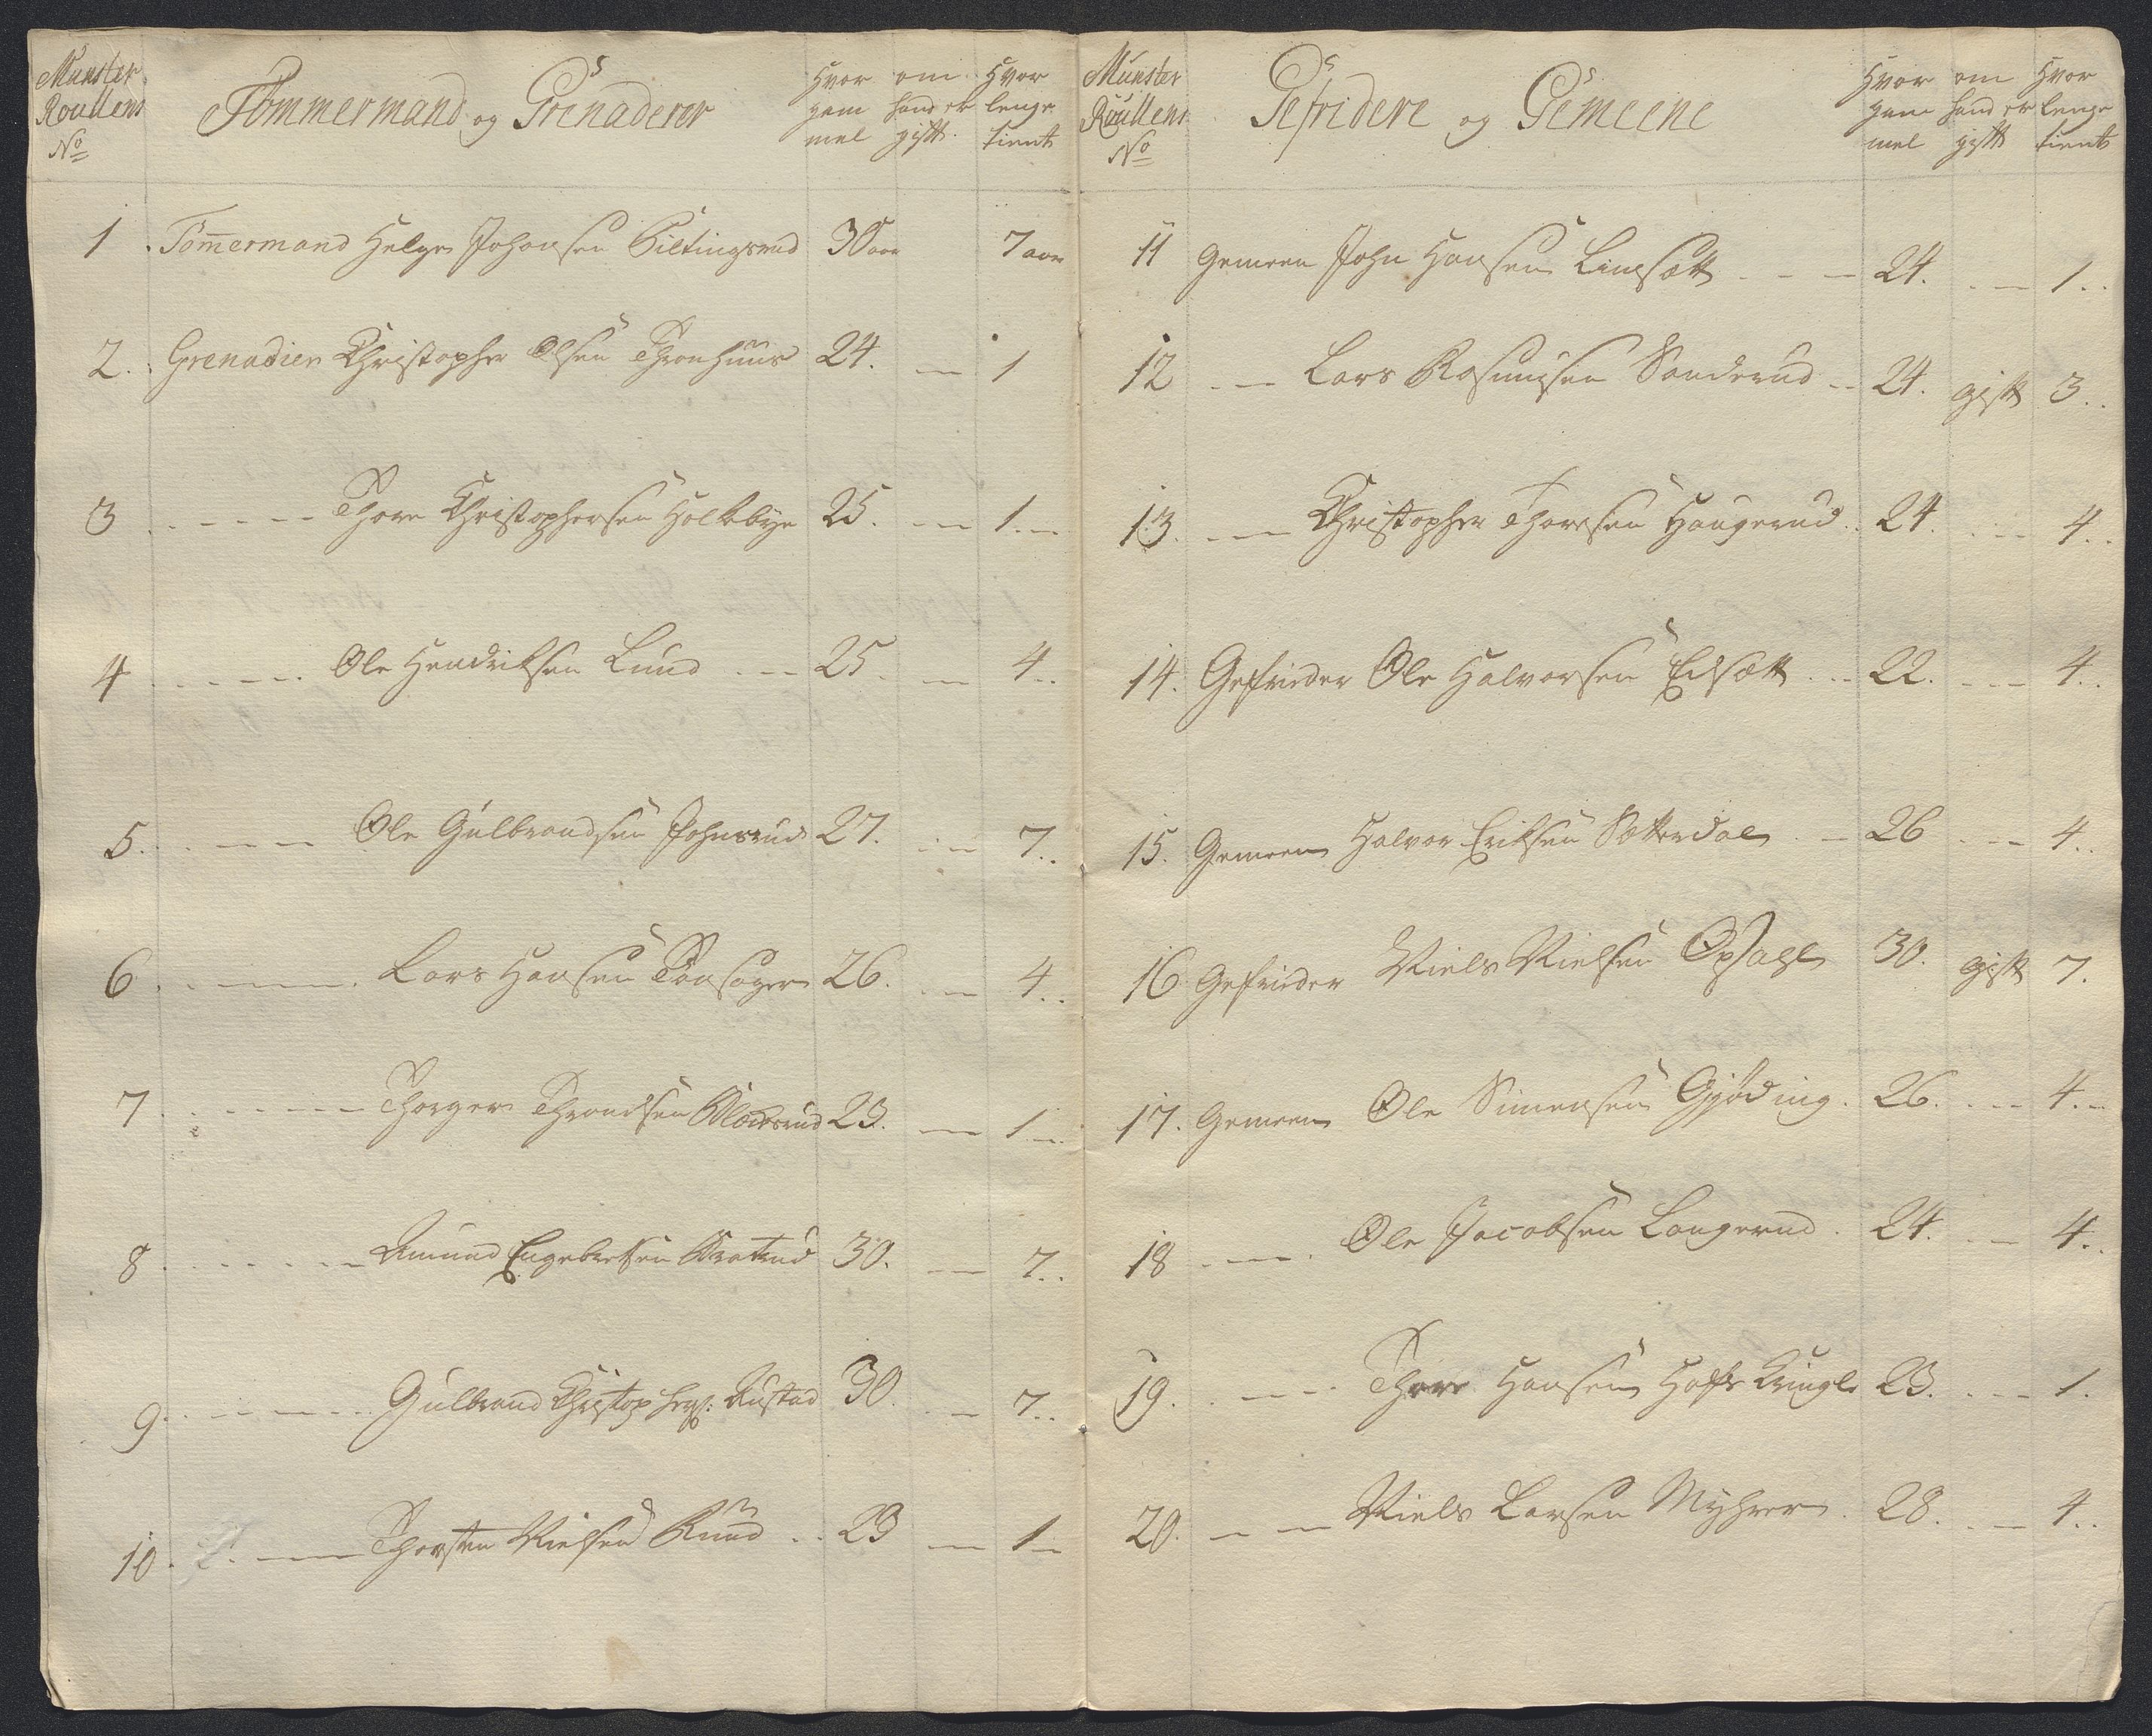 Munster Roullens No
Tömmermand og Grenaderer
Hvor gam mel
om hand er gift
Hvor lenge tient
1 Tömermand Helge Johansen Biltingsrud 30 aar 7 aar
2. Grenadier Christopher Olsen Thronhuus 24. — 1
3 ----- Thore Christophersen Holtebye 25. — 1. —
4 ----- Ole Hendriksen Lund --- 25. — 4..
5. ----- Ole Gulbrandsen Johnsrud 27. — 7..
6 ----- Lars Hansen 26. — 4..
7 ----- Thorger Throndsen 23. — 1 —
8 ----- Amund Engebretsen 30. — 7..
9 ----- Gulbrand Christophers: Rustad 30. — 7..
10. ----- Thorsten Nielsen Ruud .. 23 — 1 —
Munster Roullens No
Gefridere og Gemeene
Hvor gam mel
om hand er gift
Hvor lenge tient
11 Gemeen John Hansen - - - 24. — 1..
12 -- Lars Rasmusen Sanderud -- 24. gift 3..
13. --- Christopher Thoresen Haugerud .. 24. --- 4..
14. Gefrieder Ole Halvorsen --- 22. --- 4..
15. Gemeen Halvor Eriksen Sætterdal -- 26 --- 4..
16 Gefrieder Niels Nielsen Opsahl 30. gift 7.
17. Gemeen Ole Simensen Gjøding. 26. --- 4. —
18 --- Ole Jacobsen Langerud. 24. --- 4..
19. --- Thore Hansen 23. --- 1.
20. --- Niels Larsen Myhren. 28. --- 4..